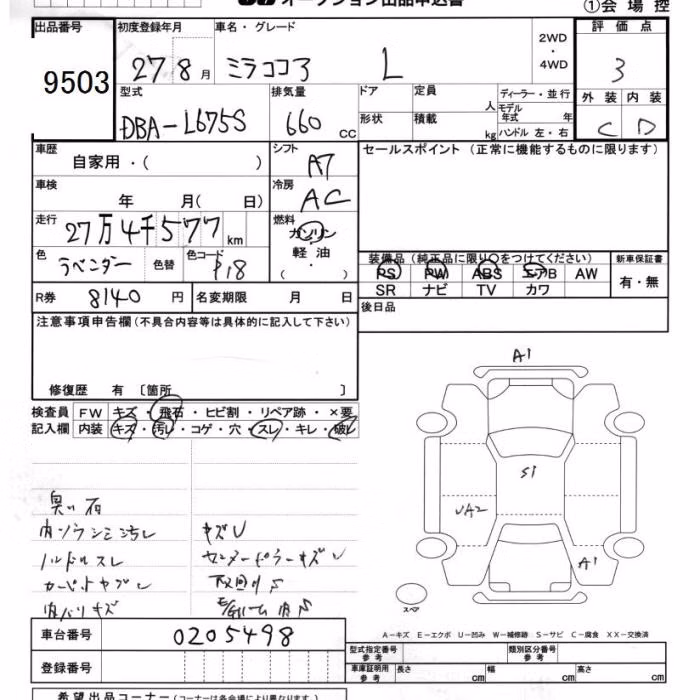 オークション出品申込書
①会場控
出品番号 初度登録年月 車名・グレード 2WD・4WD 評価点
9503 27年8月 ミラココア L 3
型式 排気量 ドア 定員 人 ディーラー・並行 外装 内装
DBA-L675S 660cc 形状 積載 kg モデル年式 年 ハンドル 左・右 C D
車歴 自家用・( ) シフト AT セールスポイント(正常に機能するものに限ります)
車検 年 月( 日) 冷房 AC
走行 27万4千577km 燃料 ガソリン・軽油・( )
色 ラベンダー 色替 色コード P18
装備品(純正品に限り○をつけてください) 新車保証書
PS PW ABS エアB AW 有・無
SR ナビ TV カワ
R券 8140円 名変期限 月 日 後日品
注意事項申告欄(不具合内容等は具体的に記入して下さい)
修復歴 有 〔箇所 〕
検査員記入欄 FW キズ・飛石・ヒビ割・リペア跡・×要
内装 キズ・汚レ・コゲ・穴・スレ・キレ・破レ
A1
S1
UA2
A1
スペア
ハンドルスレ
内バリキズ
A-キズ E-エクボ U-凹み W-補修跡 S-サビ C-腐食 XX-交換済
車台番号 0205498
型式指定番号 参考 類別区分番号 参考
登録番号 車庫証明用 参考 長さ cm 幅 cm 高さ cm
希望出品コーナー(コーナーは各会場により異なります)